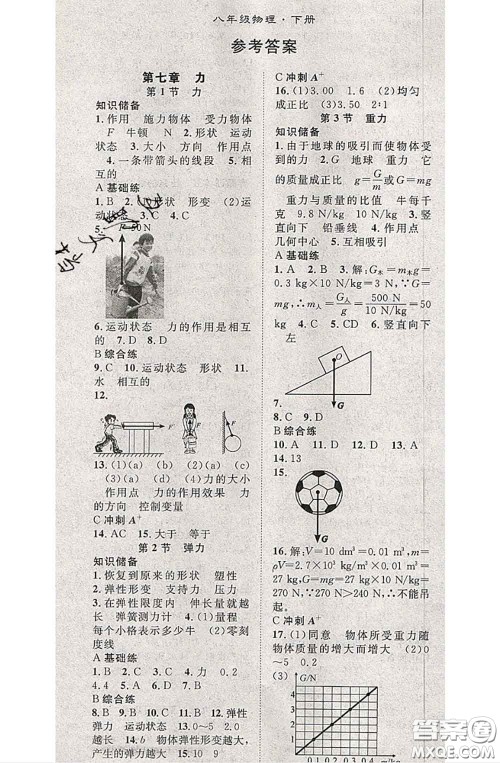 八年级物理·下册
参考答案
第七章 力
第1节 力
知识储备
1.作用 施力物体 受力物体
F 牛顿 N 2.形状 运动
状态 3.大小 方向 作用点
4.一条带箭头的线段 5.相
互的
A 基础练
1.B 2.(1)形状 形变 (2)运
动状态 3.C 4.C
5.
F=50N
6.运动状态 力的作用是相互
的 7.D 8.D
B 综合练
9.C 10.运动状态 形状 11.
水 相互的
12.
F
F
13.(1)(a) (b) (2)(a) (c)
(3)(a) (d) (4)力的大小
作用点 力的作用效果 力
的方向 控制变量
C 冲刺 A+
14.AC 15.大于 等于
第2节 弹力
知识储备
1.恢复到原来的形状 塑性
2.弹性形变 支持力 压力
3.在弹性限度内 伸长量就越
长 弹簧测力计 4.(1)量程
每个小格表示多少牛 (2)零刻
度线
A 基础练
1.B 2.C 3.C 4.A 5.B
6.B 7.D
B 综合练
8.B 9.D 11.B 12.弹性
弹力 运动状态 13.0～5 2.0
越大 14.b 物体弹性形变越大，
产生的弹力越大 15.10 9
C 冲刺 A+
16.(1)3.00 1.6 (2)均匀
成正比 (3)3.50 2:1
第3节 重力
知识储备
1.由于地球的吸引而使物体受
到的力 2.G 地球 重力 它
的质量成正比 g=G/m或G=mg
重力与质量的比值 牛每千
克 9.8 N/kg 10 N/kg 3.竖
直向下 铅垂线 4.作用点
几何中心 5.互相吸引
A 基础练
1.A 2.B 3.解:G木=m木g=
0.3 kg×10 N/kg=3 N,∵G=
mg,∴m人=G人/g=500 N/10 N/kg=50
kg 4.C 5.CD 6.竖直向下
左
O
G
7.
8.C 9.D
B 综合练
10.A 11.D 12.D 13.A
14.B
15.
G
16.解:V=10 dm³=0.01 m³,m
=ρV=2.7×10³ kg/m³×0.01 m³
=27 kg,G=mg=27 kg×10 N/kg
=270 N,∵270 N>200 N,∴不能吊
起。
C 冲刺 A+
17.(1)同意 物体所受重力随
物体质量的增大而增大 (2)0
～5 0.2
(3)
G/N
4
3
2
1
0 0.1 0.2 0.3 0.4 m/kg
答案圈
MXQE.COM